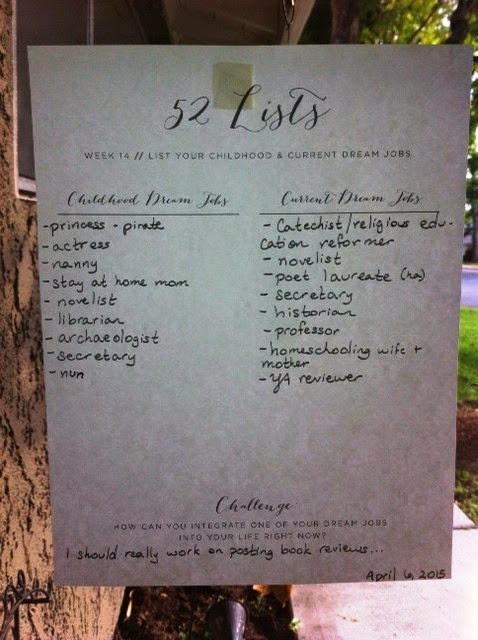 52 Lists
WEEK 14 // LIST YOUR CHILDHOOD & CURRENT DREAM JOBS
Childhood Dream Jobs
- princess - pirate
- actress
- nanny
- stay at home mom
- novelist
- librarian
- archaeologist
- secretary
- nun
Current Dream Jobs
- Catechist/religious edu-
cation reformer
- novelist
- poet laureate (ha)
- secretary
- historian
- professor
- homeschooling wife +
mother
- YA reviewer
Challenge
HOW CAN YOU INTEGRATE ONE OF YOUR DREAM JOBS
INTO YOUR LIFE RIGHT NOW?
I should really work on posting book reviews...
April 6, 2015